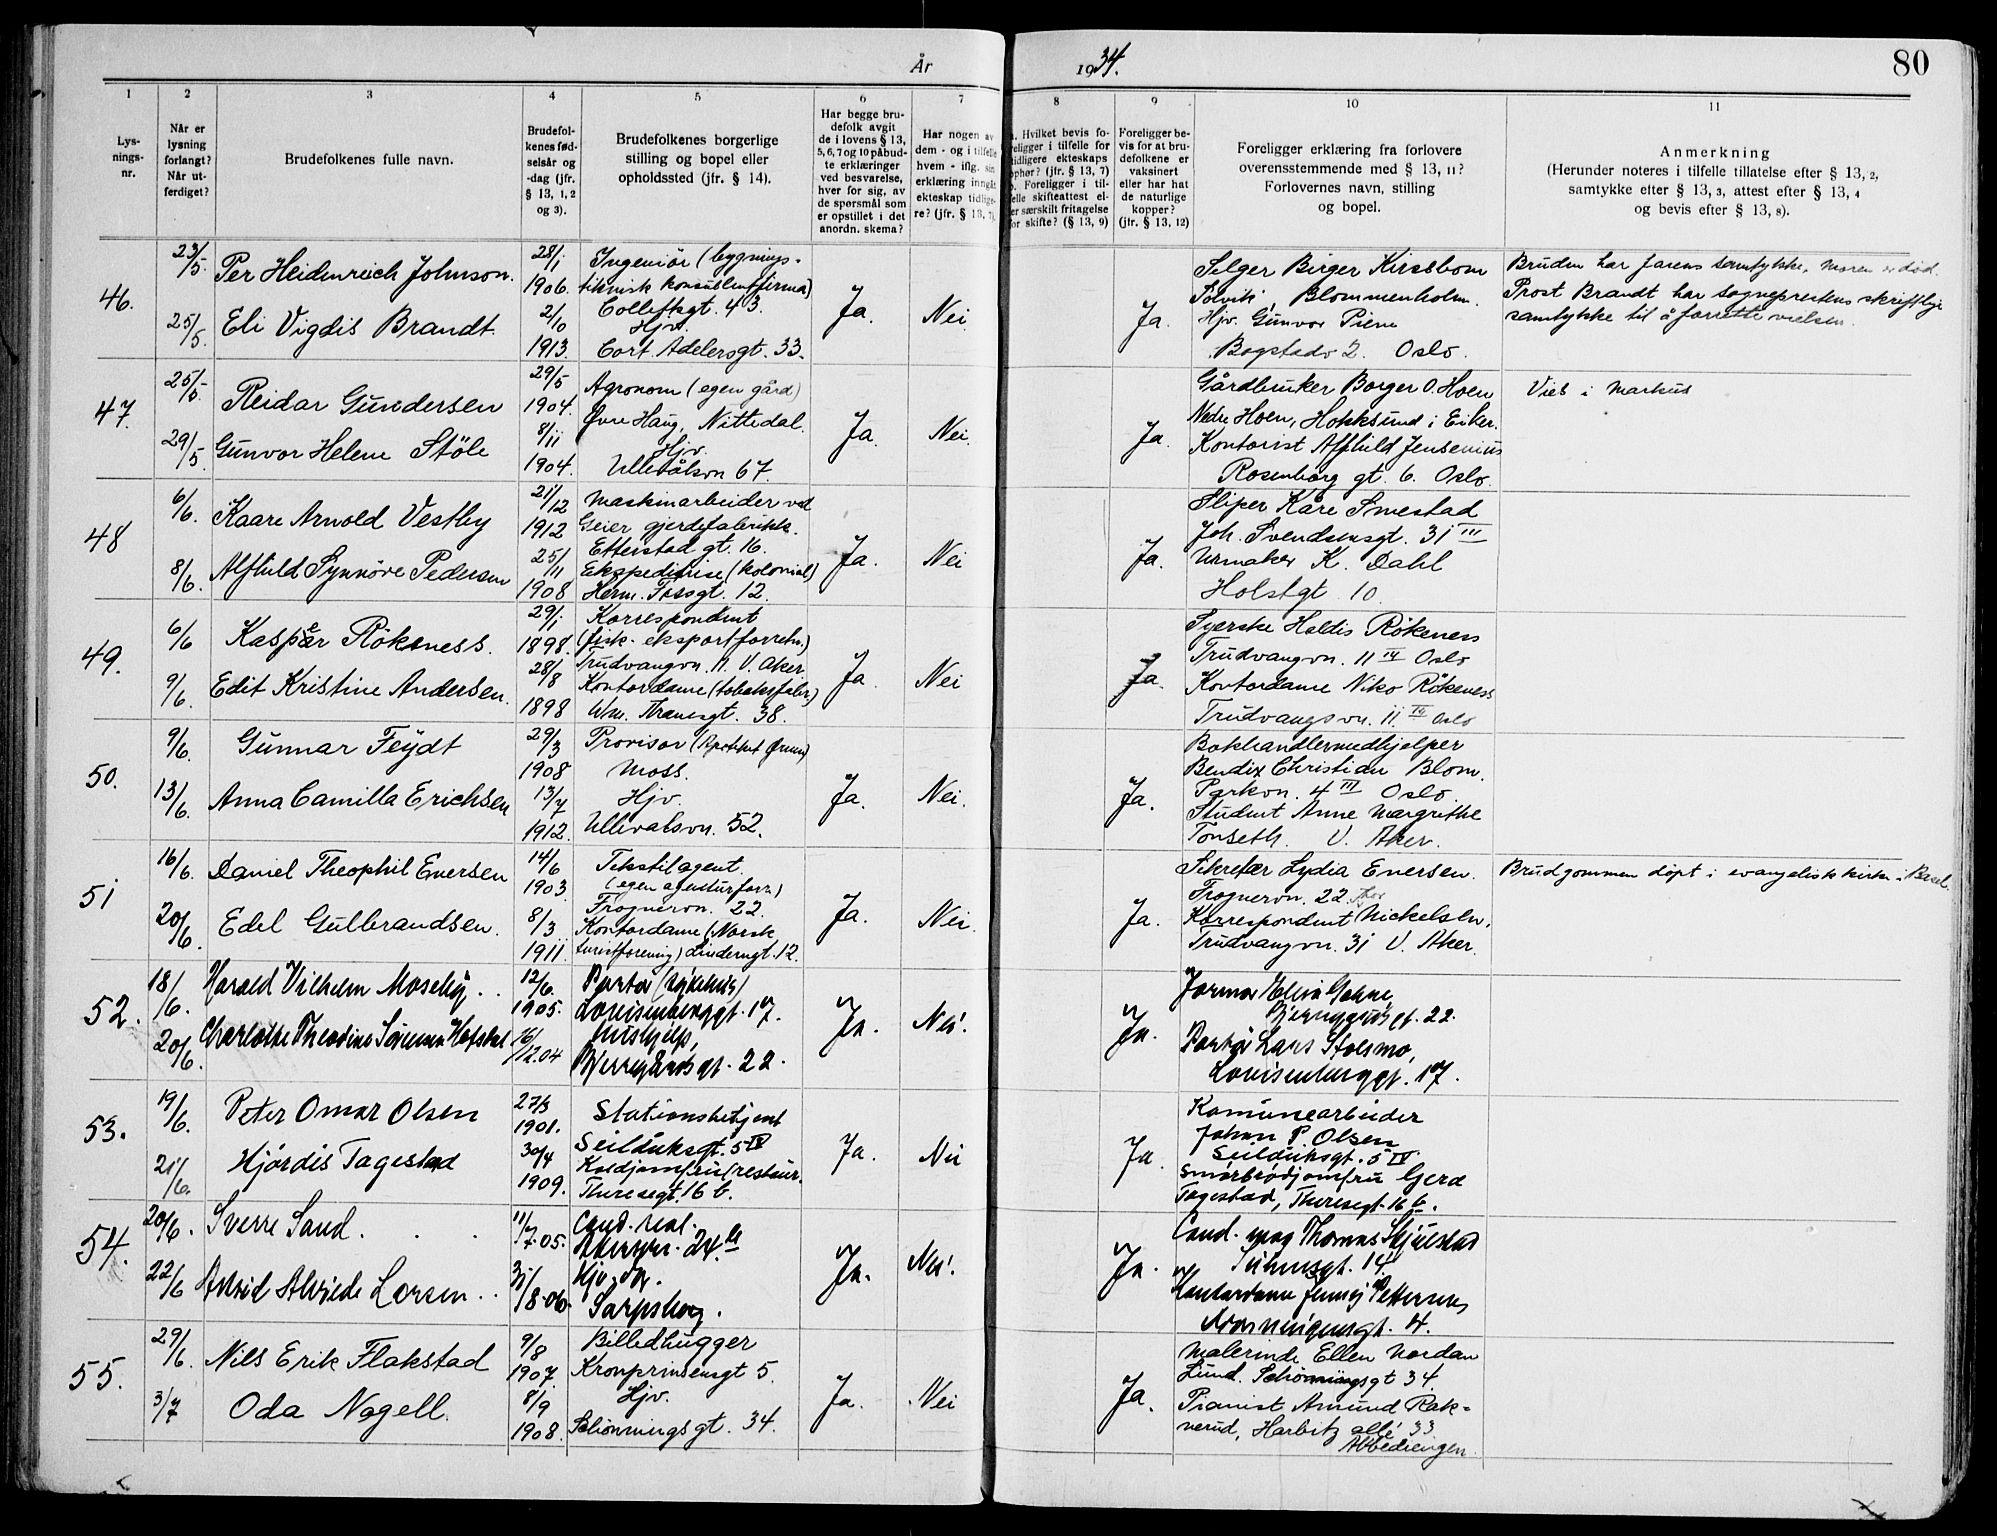 År 1934. 80
1 2 3 4 5 6 7 8 9 10 11
Lys-
nings-
nr.
Når er
lysning
forlangt?
Når ut-
ferdiget?
Brudefolkenes fulle navn.
Brudefol-
kenes fød-
selsår og
-dag (jfr.
§ 13, 1, 2
og 3).
Brudefolkenes borgerlige
stilling og bopel eller
opholdssted (jfr. § 14).
Har begge bru-
defolk avgit
de i lovens § 13,
5, 6, 7 og 10 påbud-
te erklæringer
ved besvarelse,
hver for sig, av
de spørsmål som
er opstillet i det
anordn. skema?
Har nogen av
dem - og i tilfelle
hvem - iflg. sin
erklæring inngått
ekteskap tidlige-
re? (jfr. § 13, 7).
Hvilket bevis fo-
religger i tilfelle for
tidligere ekteskaps
ophør? (jfr. § 13, 7)
Foreligger i til-
felle skifteattest el-
ler særskilt fritagelse
for skifte? (§ 13, 9)
Foreligger be-
vis for at bru-
defolkene er
vaksinert
eller har hat
de naturlige
kopper?
(jfr. § 13, 12)
Foreligger erklæring fra forlovere
overensstemmende med § 13, 11?
Forlovernes navn, stilling
og bopel.
Anmerkning
(Herunder noteres i tilfelle tillatelse efter § 13, 2,
samtykke efter § 13, 3, attest efter § 13, 4
og bevis efter § 13, 8).
46.
23/5.
25/5.
Per Heidenreich Johnson.
Eli Vigdis Brandt
28/1
1906.
2/10
1913.
Ingeniör (bygnings-
teknisk konsulentfirma)
Collettsgt. 43.
Hjv.
Cort Adelersgt. 33.
Ja.
Nei
Ja.
Selger Birger Kirsebom
Solvik, Blommenholm.
Hjv. Gunvor Piene
Bogstadv 2. Oslo.
Bruden har farens samtykke, moren er død.
Prost Brandt har sogneprestens skriftlige
samtykke til å forrette vielsen.
47.
25/5.
29/5.
Reidar Gundersen
Gunvor Helene Stöle
29/5
1904.
8/11
1904.
Agronom (egen gård)
Øvre Haug, Nittedal.
Hjv.
Ullevålsvn 67.
Ja.
Nei.
Ja.
Gårdbruker Borger O. Hoen
Nedre Hoen, Hokksund i Eiker.
Kontorist Alfhild Jensenius
Rosenborg gt. 6. Oslo.
Vies i Markus
48
6/6.
8/6.
Kaare Arnold Vestby
Alfhild Synnöve Pedersen
21/12
1912
25/11
1908
Maskinarbeider ved
Geier gjerdefabrikk.
Etterstad gt. 16.
Ekspeditrise (kolonial)
Herm. Fossgt. 12.
Ja.
Nei
Ja.
Sliper Kåre Smestad
Joh. Svendsensgt. 31 III
Urmaker K. Dahl
Holstgt 10.
49.
6/6
9/6.
Kasper Rökeness.
Edit Kristine Andersen.
29/1
1898.
28/8
1898
Korrespondent
(fisk-eksportforretn.)
Trudvangvn. 11. V. Aker.
Kontordame (tobaksfabr.)
Wm. Thranesgt. 38.
Ja.
Nei
Ja.
Syerske Haldis Rökeness
Trudvangvn. 11 IV Oslo
Kontordame Niko Rökeness
Trudvangsvn. 11. IV Oslo
50.
9/6.
13/6.
Gunnar Feydt
Anna Camilla Erichsen
29/3
1908
13/7
1912.
Provisor (Apoteket Ørnen)
Moss.
Hjv.
Ullevalsvn. 52.
Ja.
Nei.
Ja.
Bokhandlermedhjelper
Bendix Christian Blom.
Parkvn. 4 III Oslo.
Student Anne Margrethe
Tonseth. V. Aker.
51
16/6.
20/6.
Daniel Theophil Enersen
Edel Gulbrandsen.
14/6
1903.
8/3
1911.
Tekstilagent.
(egen agenturforr.)
Frognervn. 22.
Kontordame (Norsk
turistforening) Linderngt. 12.
Ja.
Nei.
Ja.
Sekretær Lydia Enersen.
Frognervn. 22.
Korrespondent Nickelsen,
Trudvangvn. 31 V. Aker.
Brudgommen döpt i evangelisk kirke i Basel.
52.
18/6.
20/6.
Harald Vilhelm Moseby..
Charlotte Theodine Hofstad
12/6.
1905.
16/12.04
Portör (sykehus)
Lovisenberggt. 17.
hushjelp,
Bjerregårdsgt. 22.
Ja.
Nei.
Ja.
Bjerregårdsgt. 22.
Portör Lars Stolsmo,
Lovisenberggt. 17.
53.
19/6.
21/6.
Peter Omar Olsen
Hjördis Tagestad
27/3
1901.
30/4
1909.
Stationsbetjent
Seilduksgt. 5 IV
Koldjomfru (restaur.
Theresegt. 16 b.
Ja.
Nei
Ja.
Komunearbeider
Johan P. Olsen
Seilduksgt. 5 IV
Smörbrödjomfru Gerd
Tagestad, Theresegt. 16 b.
54.
20/6.
22/6
Sverre Sand. . .
Astrid Larsen..
11/7.05.
31/8.06.
Cand. real.
Hjv.
Sarpsborg.
Ja.
Nei.
Ja.
Cand. mag Thomas Skjelstad
14.
Kontordame Jenny Pettersen
4.
55.
29/6.
3/7
Nils Erik Flakstad
Oda Nagell.
9/8
1907.
8/9
1908.
Billedhugger
Kronprinsensgt 5.
Hjv.
Schönningsgt. 34.
Ja.
Nei
Ja.
Malerinde Ellen Nordan
Lund. Schönningsgt 34.
Pianist Amund Rak-
nerud, Harbitz allé 33
Abbediengen.